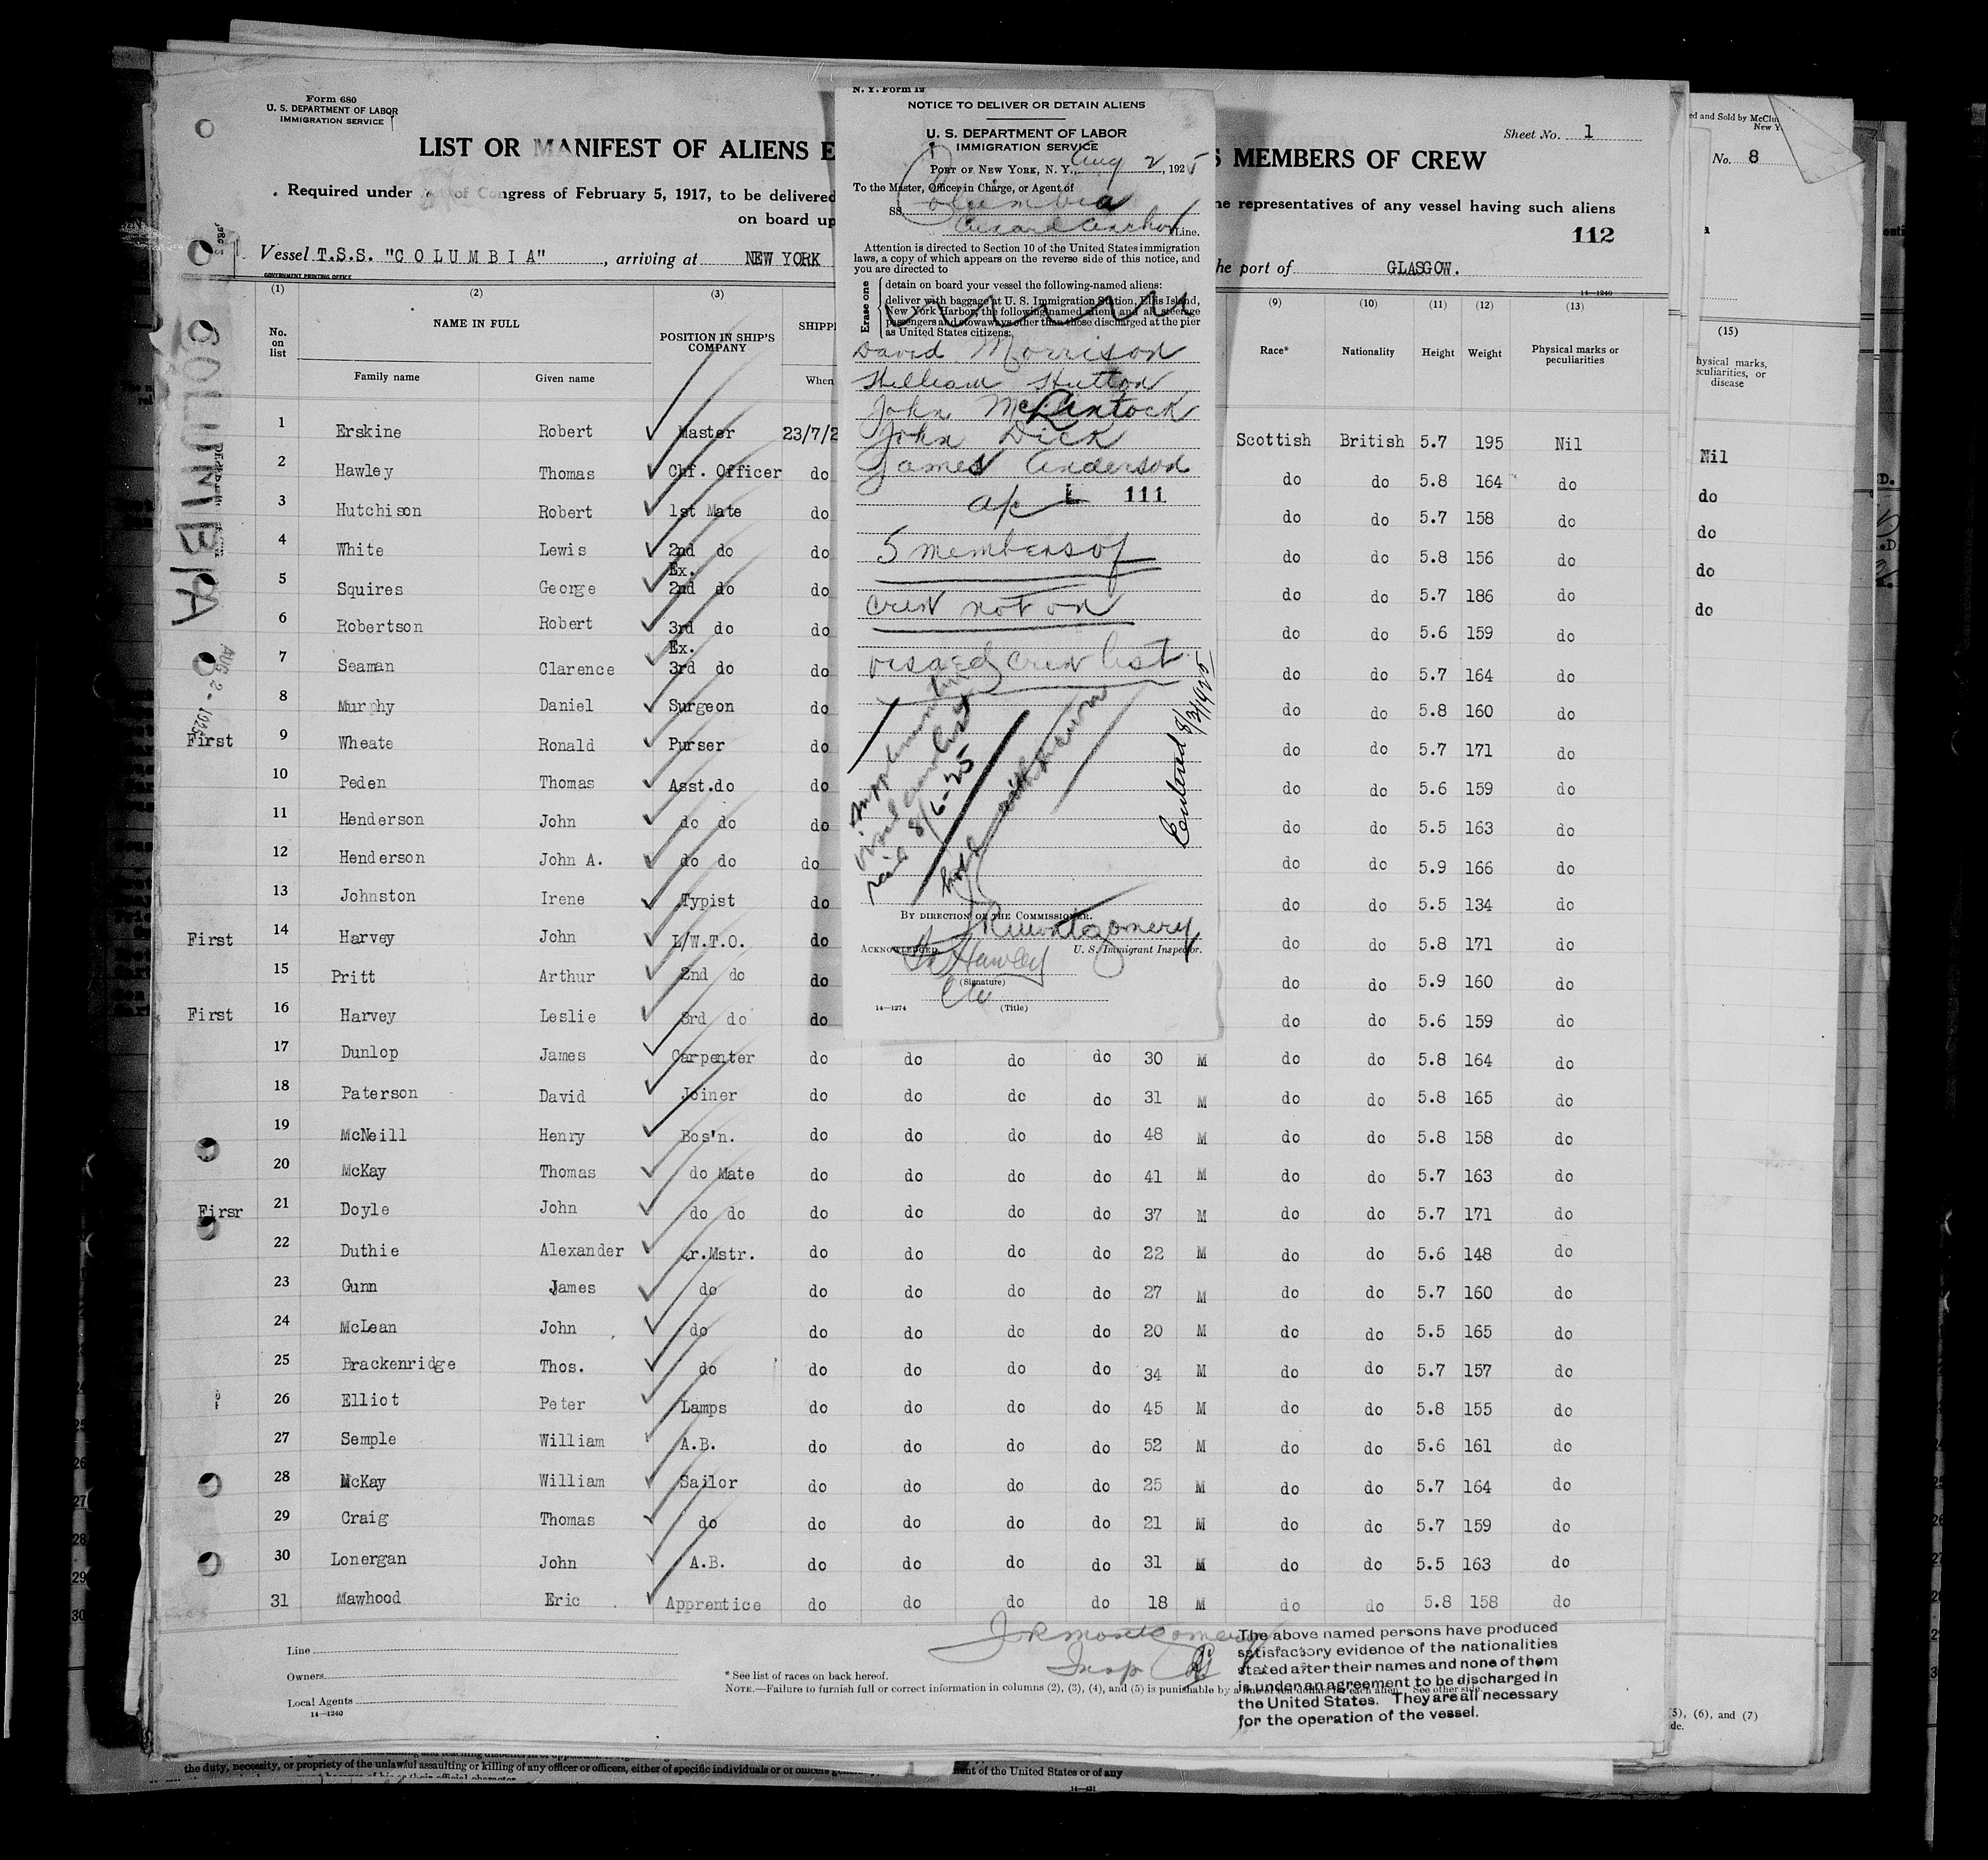 Form 680
U. S. DEPARTMENT OF LABOR
IMMIGRATION SERVICE
LIST OR MANIFEST OF ALIENS E
S MEMBERS OF CREW
Sheet No. 1
Required under Act of Congress of February 5, 1917, to be delivered
he representatives of any vessel having such aliens
on board up
112
Vessel T.S.S. "COLUMBIA", arriving at NEW YORK
he port of GLASGOW.
GOVERNMENT PRINTING OFFICE
14—1240
(1) (2) (3) (9) (10) (11) (12) (13)
No. on list
NAME IN FULL
Family name Given name
POSITION IN SHIP'S COMPANY
SHIPP
When
Race* Nationality Height Weight Physical marks or peculiarities
1 Erskine Robert Master 23/7/2 Scottish British 5.7 195 Nil
2 Hawley Thomas Chf. Officer do do do 5.8 164 do
3 Hutchison Robert 1st Mate do do do 5.7 158 do
4 White Lewis 2nd do do do do 5.8 156 do
5 Squires George Ex. 2nd do do do do 5.7 186 do
6 Robertson Robert 3rd do do do do 5.6 159 do
7 Seaman Clarence Ex. 3rd do do do do 5.7 164 do
8 Murphy Daniel Surgeon do do do 5.8 160 do
First 9 Wheate Ronald Purser do do do 5.7 171 do
10 Peden Thomas Asst.do do do do 5.6 159 do
11 Henderson John do do do do do 5.5 163 do
12 Henderson John A. do do do do do 5.9 166 do
13 Johnston Irene Typist do do do 5.5 134 do
First 14 Harvey John L/W.T.O. do do do 5.8 171 do
15 Pritt Arthur 2nd do do do do 5.9 160 do
First 16 Harvey Leslie 3rd do do do do 5.6 159 do
17 Dunlop James Carpenter do do do do 30 M do do 5.8 164 do
18 Paterson David Joiner do do do do 31 M do do 5.8 165 do
19 McNeill Henry Bos'n. do do do do 48 M do do 5.8 158 do
20 McKay Thomas do Mate do do do do 41 M do do 5.7 163 do
Firsr 21 Doyle John do do do do do do 37 M do do 5.7 171 do
22 Duthie Alexander Qr.Mstr. do do do do 22 M do do 5.6 148 do
23 Gunn James do do do do do 27 M do do 5.7 160 do
24 McLean John do do do do do 20 M do do 5.5 165 do
25 Brackenridge Thos. do do do do do 34 M do do 5.7 157 do
26 Elliot Peter Lamps do do do do 45 M do do 5.8 155 do
27 Semple William A.B. do do do do 52 M do do 5.6 161 do
28 McKay William Sailor do do do do 25 M do do 5.7 164 do
29 Craig Thomas do do do do do 21 M do do 5.7 159 do
30 Lonergan John A.B. do do do do 31 M do do 5.5 163 do
31 Mawhood Eric Apprentice do do do do 18 M do do 5.8 158 do
Line
Owners
Local Agents
14—1240
* See list of races on back hereof.
NOTE.—Failure to furnish full or correct information in columns (2), (3), (4), and (5) is punishable by a fine of ten dollars for each alien. See other side.
J R Montgomery
Insp
The above named persons have produced
satisfactory evidence of the nationalities
stated after their names and none of them
is under an agreement to be discharged in
the United States. They are all necessary
for the operation of the vessel.
COLUMBIA
AUG 2 - 1925
N. Y. Form 12
NOTICE TO DELIVER OR DETAIN ALIENS
U. S. DEPARTMENT OF LABOR
IMMIGRATION SERVICE
PORT OF NEW YORK, N. Y., Aug 2, 1925
To the Master, Officer in Charge, or Agent of
SS. Columbia
Cunard Anchor Line.
Attention is directed to Section 10 of the United States immigration
laws, a copy of which appears on the reverse side of this notice, and
you are directed to
Erase one
detain on board your vessel the following-named aliens:
deliver with baggage at U. S. Immigration Station, Ellis Island,
New York Harbor, the following named alien and all steerage
passengers and stowaways other than those discharged at the pier
as United States citizens:
David Morrison
William Hutton
John McLintock
John Dick
James Anderson
a/c L 111
5 members of
crew not on
visaed crew list
supplementary
visaed crew list
rec'd 8/6-25
Entered 8/3/1925
BY DIRECTION OF THE COMMISSIONER.
J R Montgomery
U. S. Immigrant Inspector.
ACKNOWLEDGED
Hawley
(Signature)
C/o
(Title)
14—1274
ed and Sold by McClu
New Y
No. 8
(15)
hysical marks,
eculiarities, or
disease
Nil
do
do
do
do
(5), (6), and (7)
ide.
the duty, necessity, or propriety of the unlawful assaulting or killing of any officer or officers, either of specific individuals or of officers
ent of the United States or of any
14—431